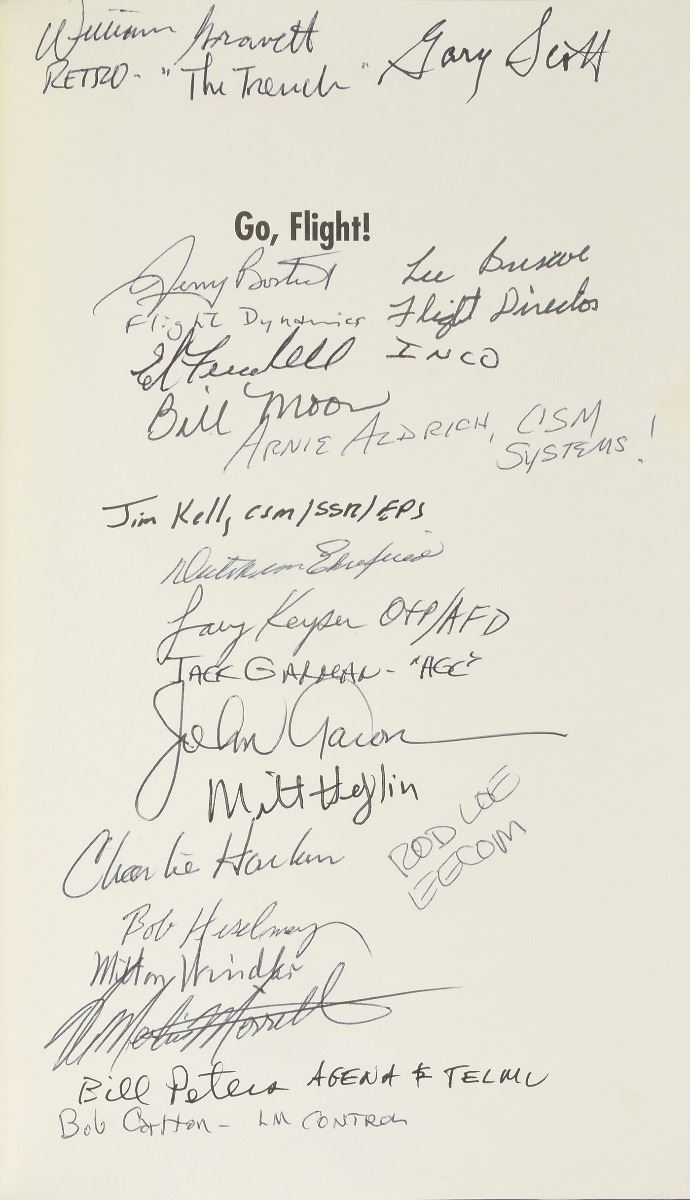 William Gravett
RETRO - "The Trench" Gary Scott
Go, Flight!
Jerry Bostick Lee Briscoe
Flight Dynamics Flight Director
Ed Fendell INCO
Bill Moon
ARNIE ALDRICH, CSM
SYSTEMS!
Jim Kelly, CSM/SSR/EPS
Larry Keyser O&P/AFD
JACK GARMAN - "AGC"
John Aaron
Milt Heflin
Charlie Harlan
ROD LOE
EECOM
Bob Heselmeyer
Milton Windler
Bill Peters AGENA & TELMU
Bob Carlton - LM CONTROL